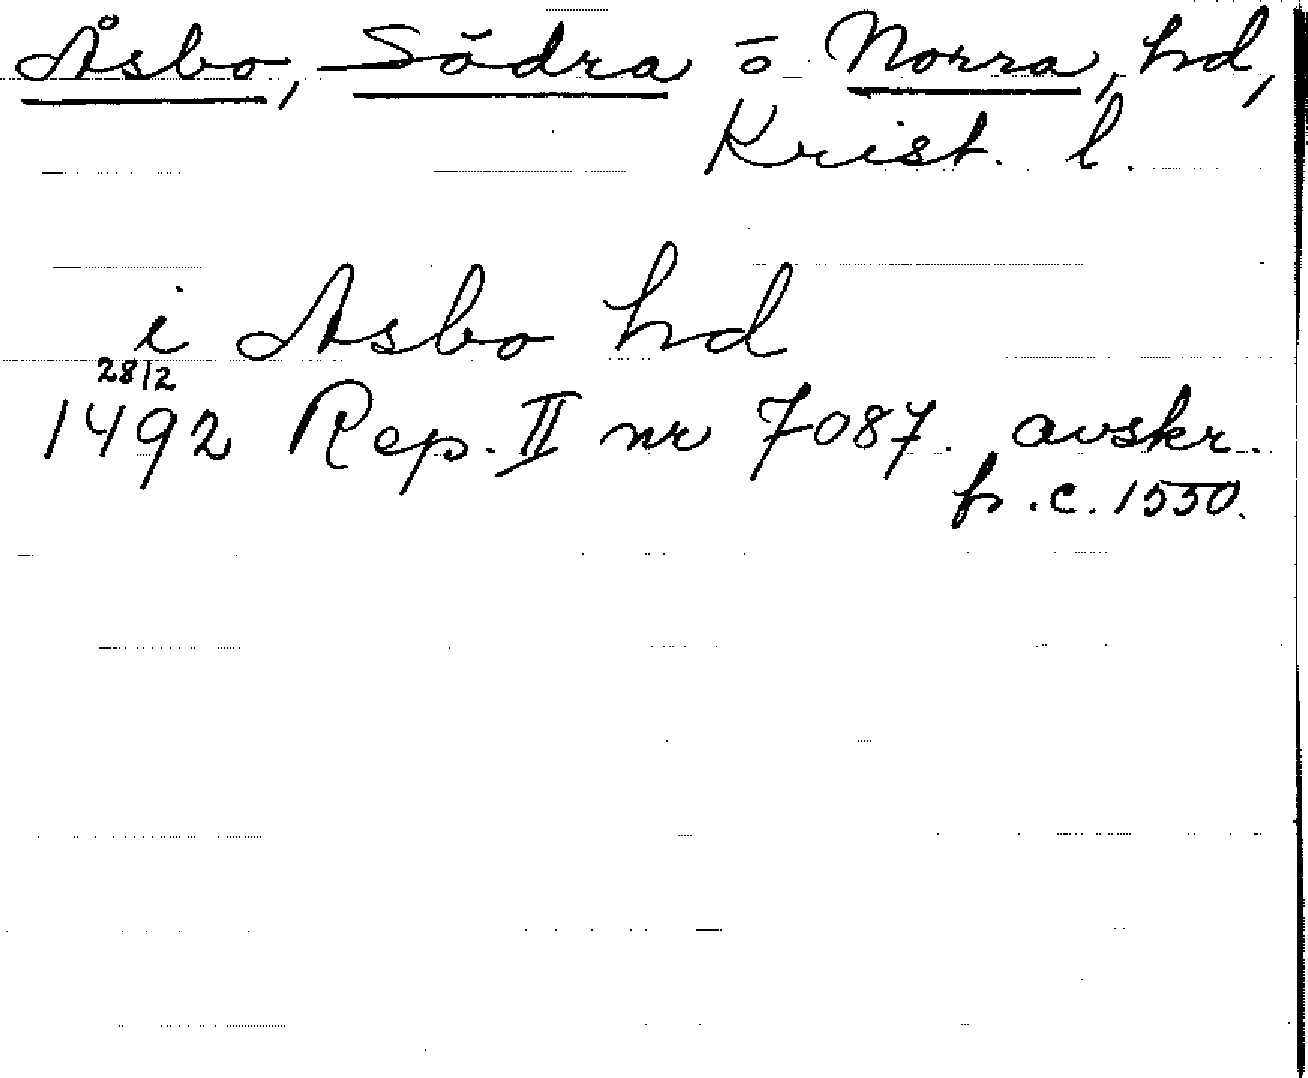 Åsbo, Södra o Norra, hd,
Krist. l.
i Asbo hd
28/2
1492 Rep. II nr 7087. avskr.
fr. c. 1550.